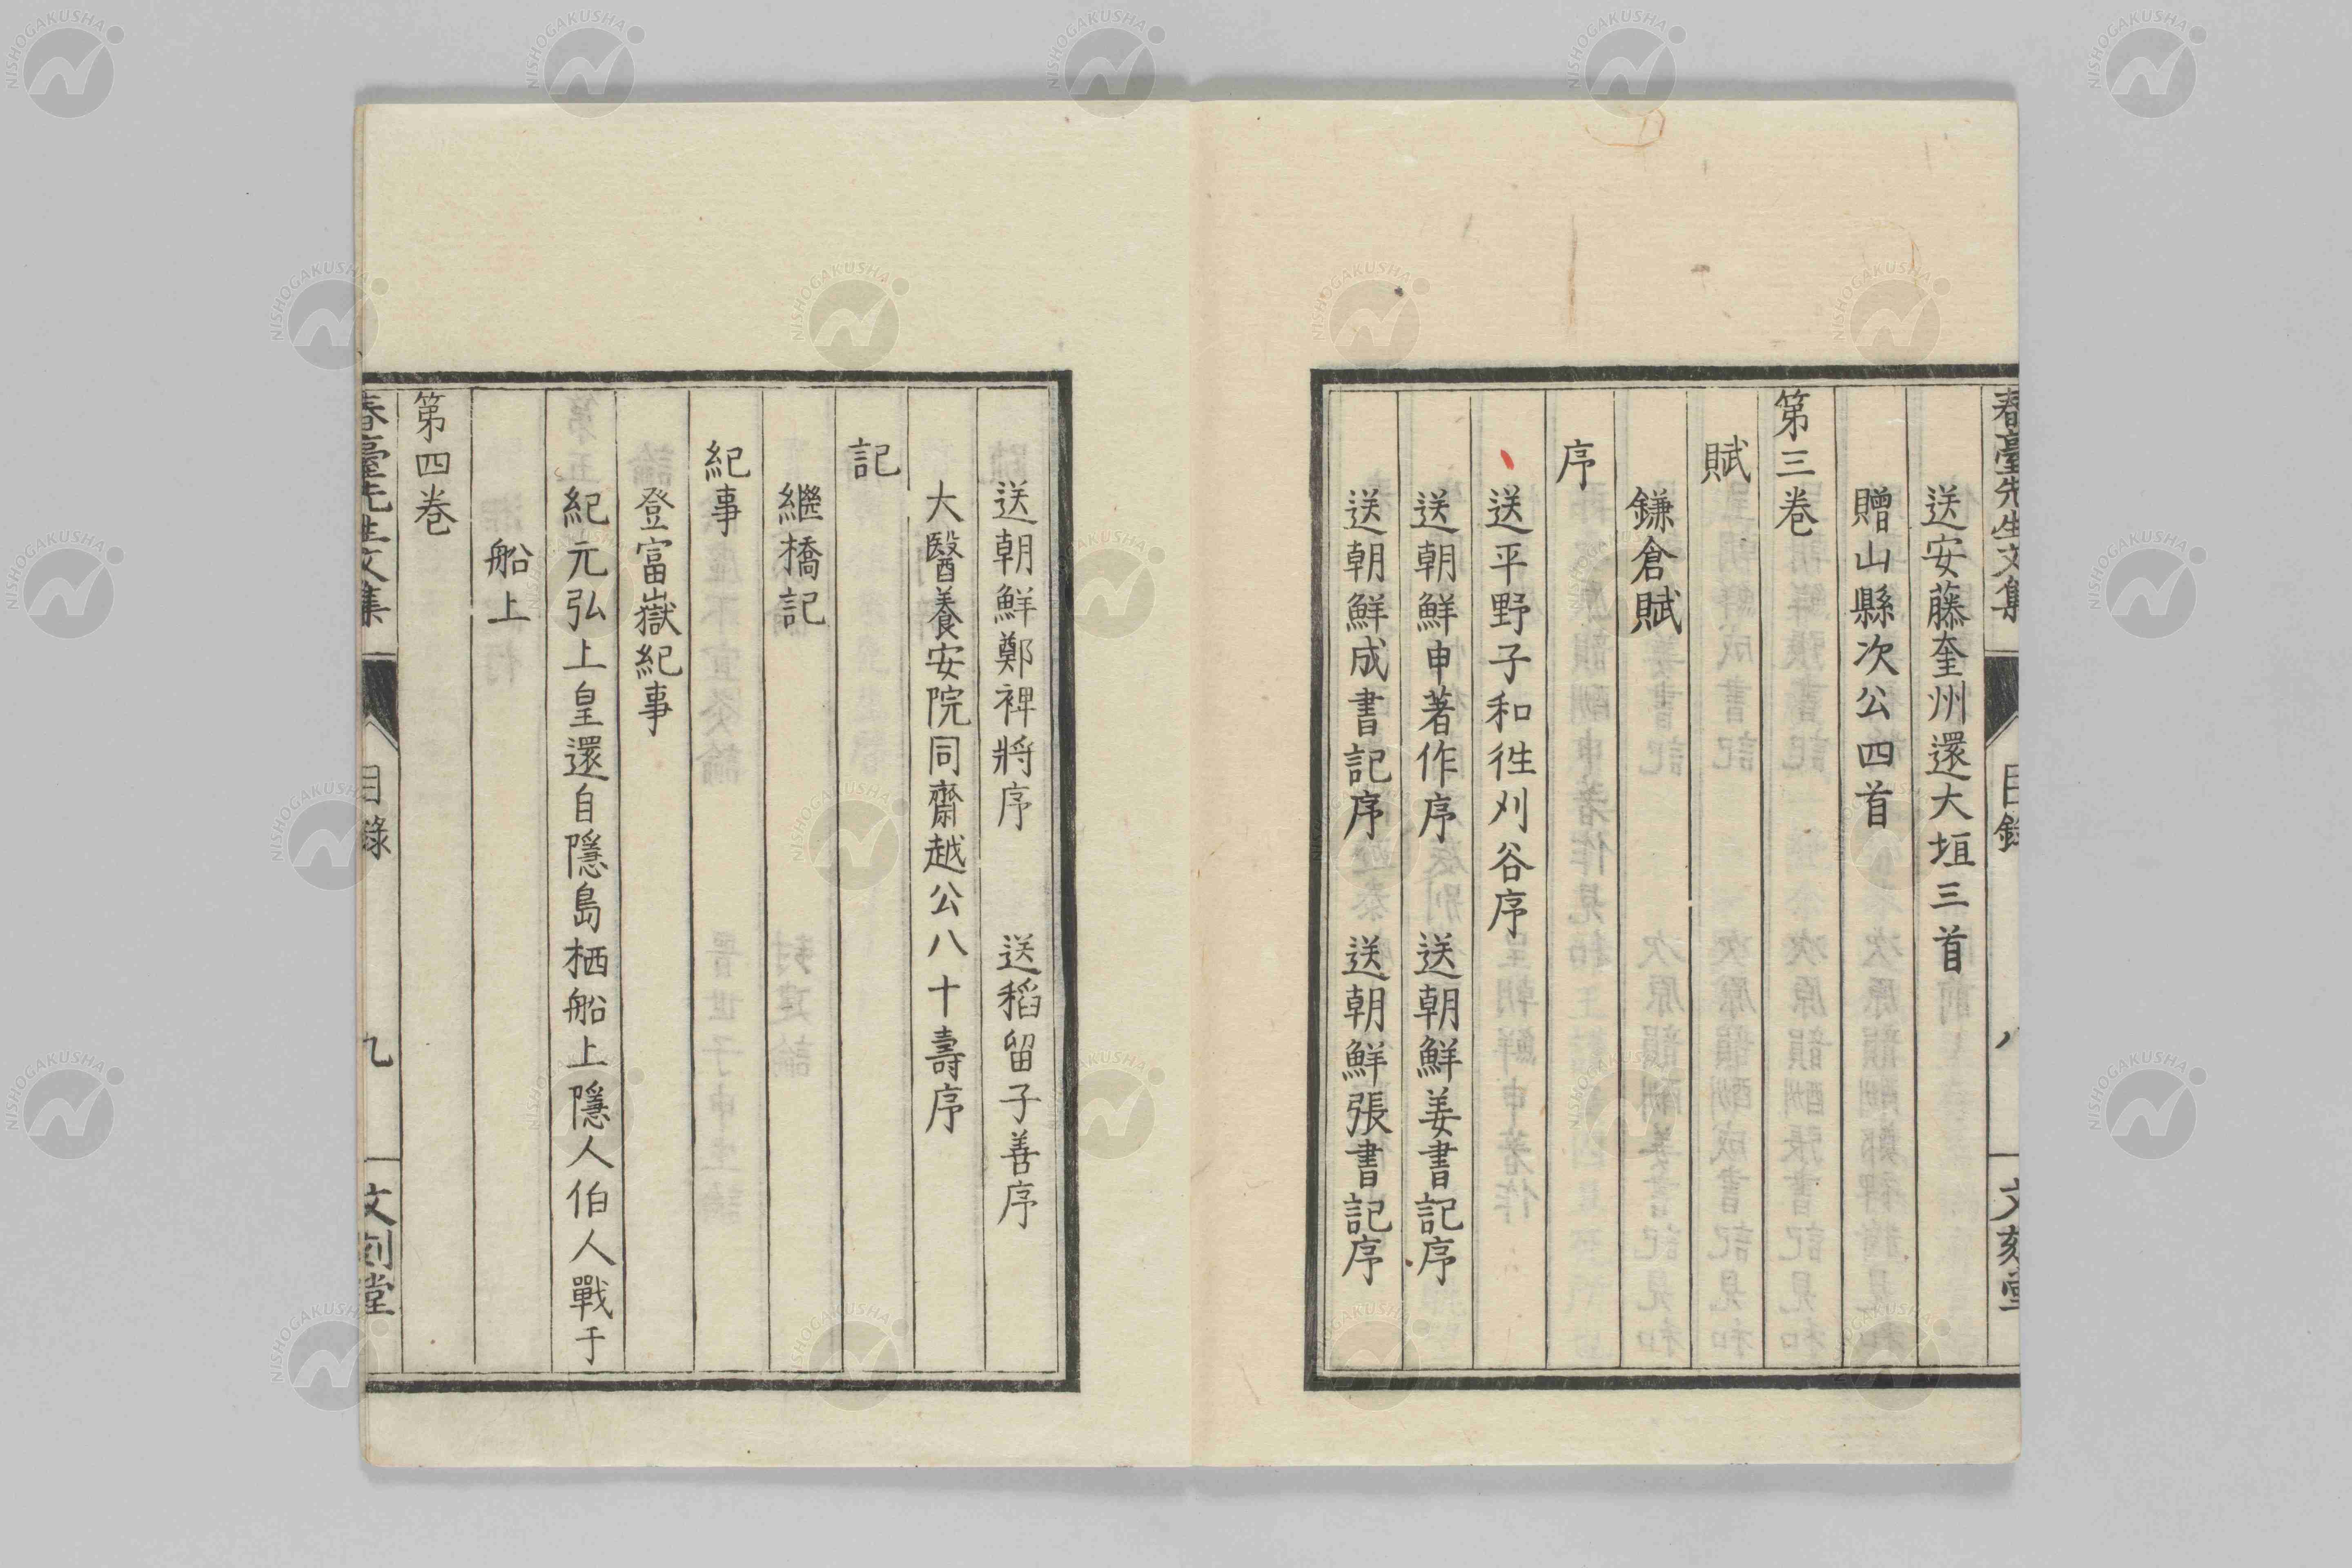 春臺先生文集 目録 八 文刻堂
送安藤奎州還大垣三首
贈山縣次公四首
第三卷
賦
鎌倉賦
序
送平野子和徃刈谷序
送朝鮮申著作序 送朝鮮姜書記序
送朝鮮成書記序 送朝鮮張書記序
送朝鮮鄭裨將序 送稻留子善序
大醫養安院同齋越公八十壽序
記
繼橋記
紀事
登富嶽紀事
紀元弘上皇還自隱島栖船上隱人伯人戰于
船上
第四卷
春臺先生文集 目錄 九 文刻堂
NISHOGAKUSHA